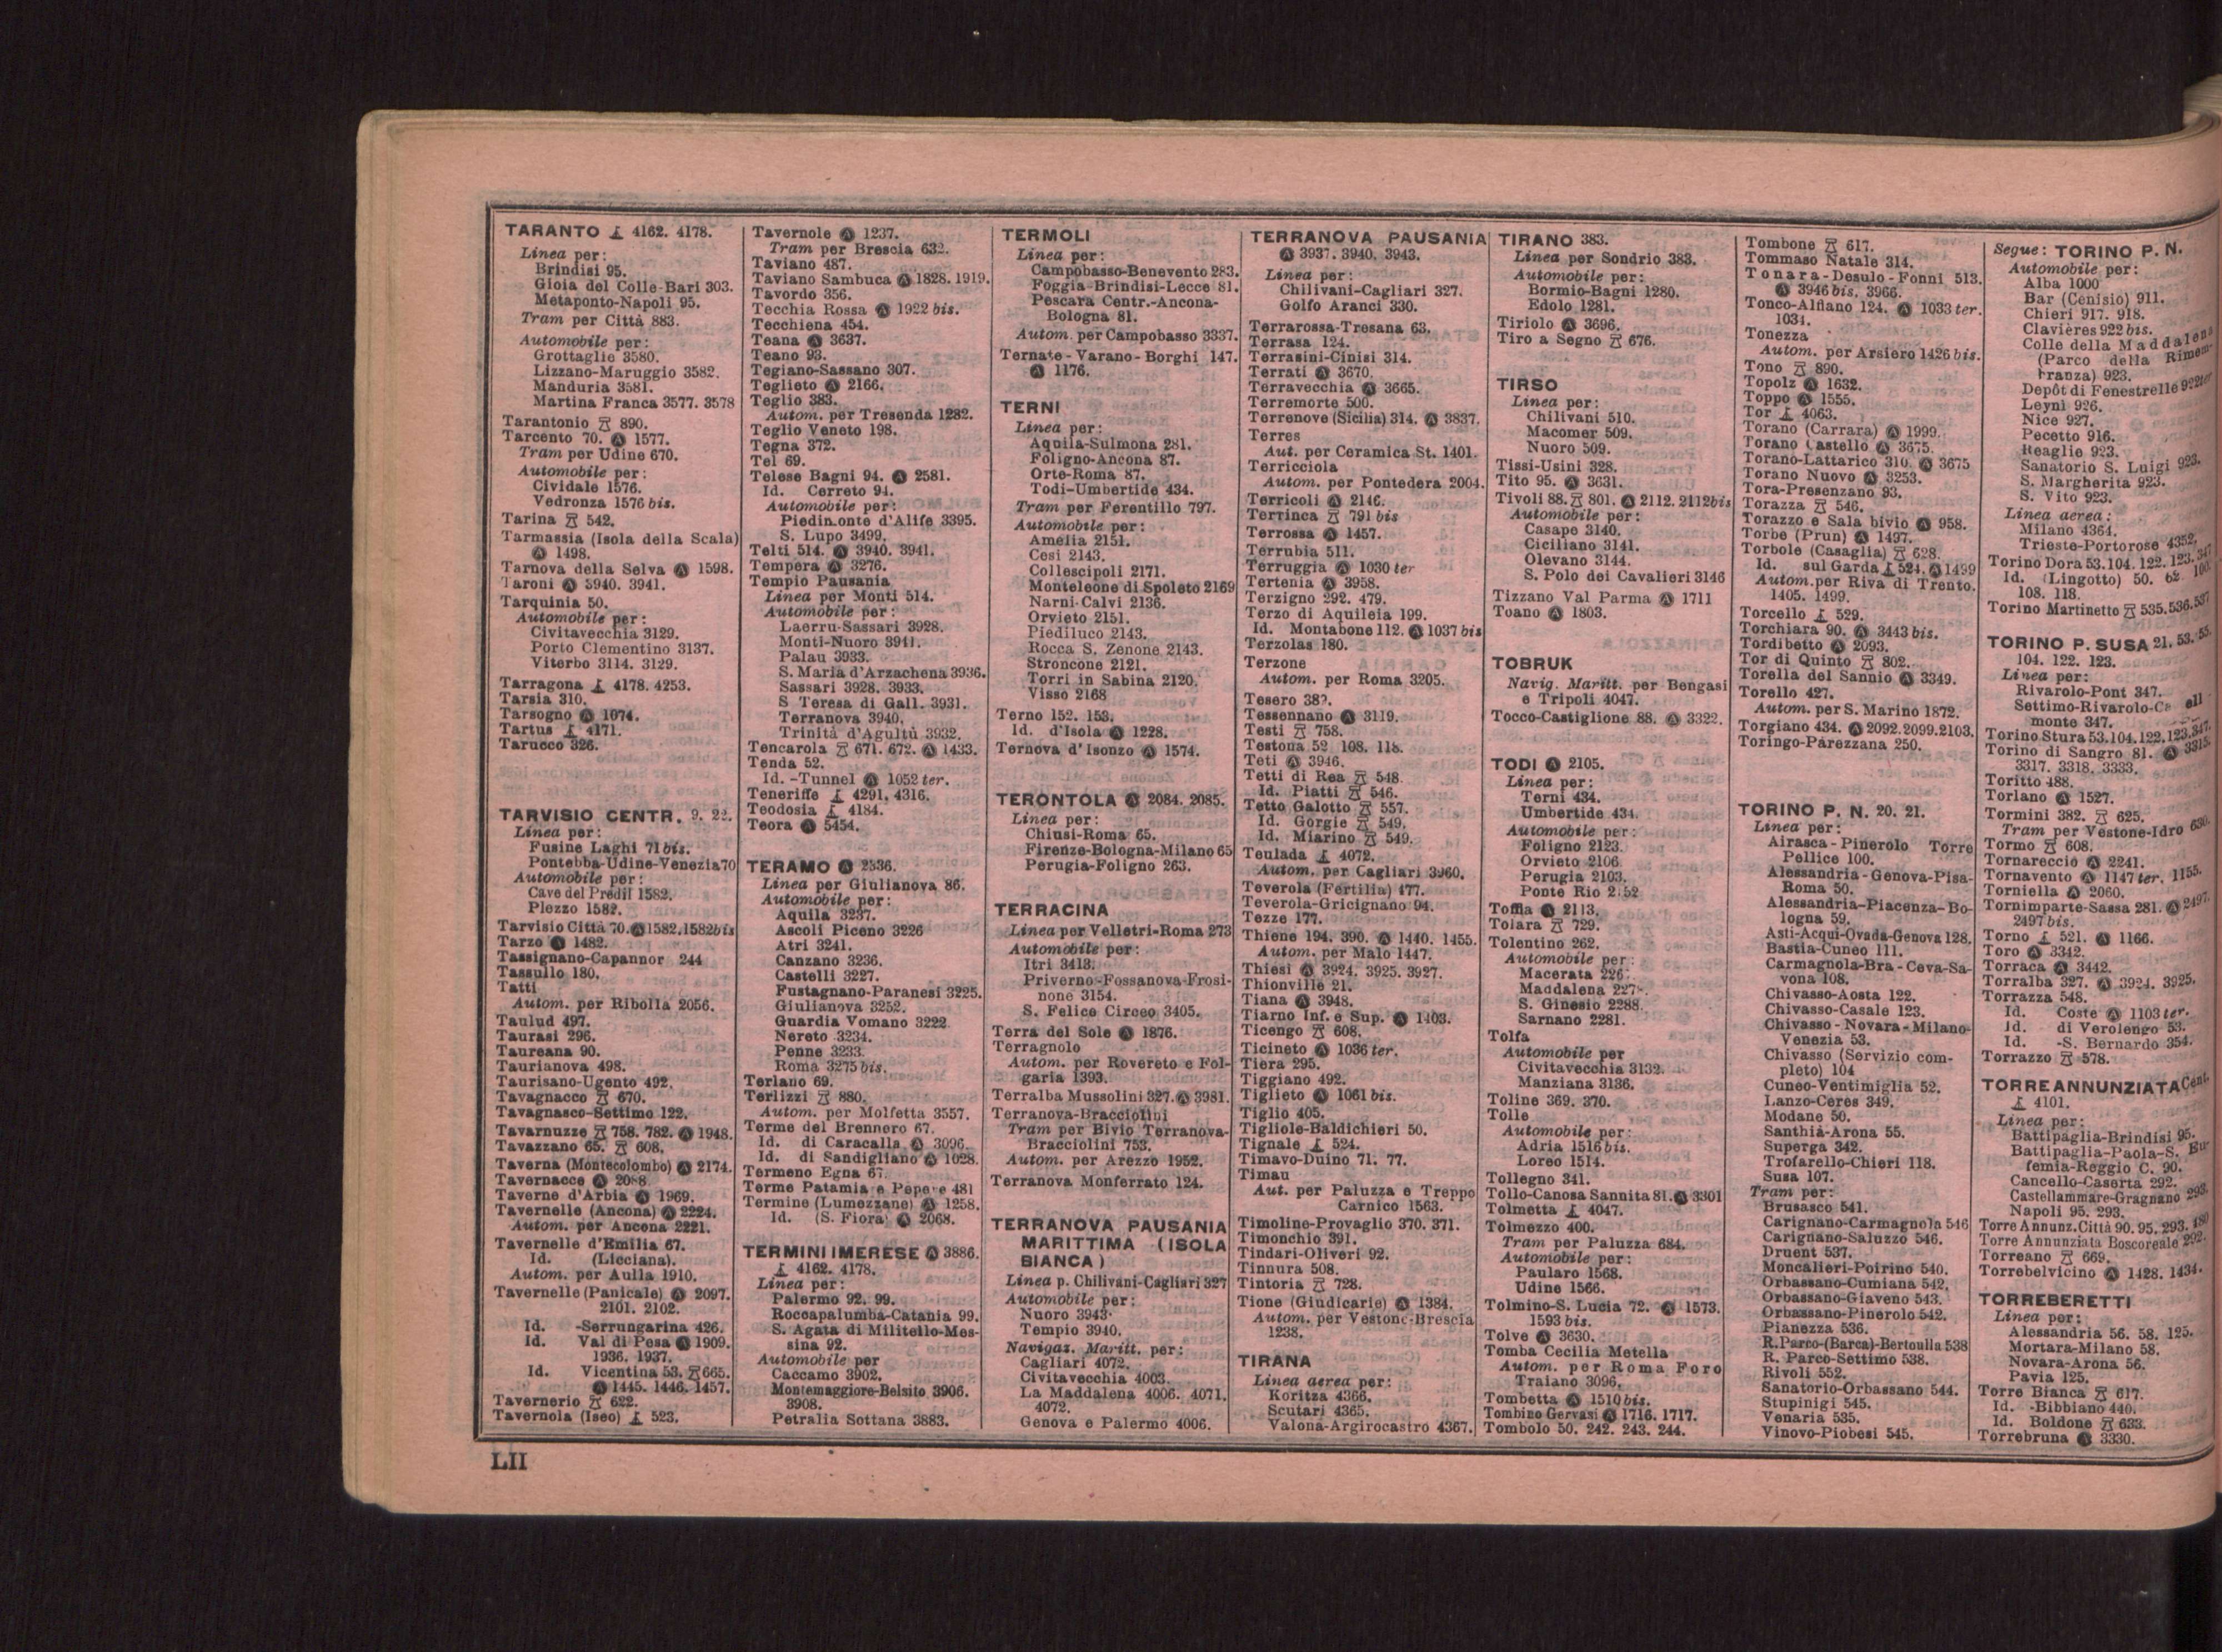 TARANTO 4162. 4178.
Linea per:
Brindisi 95.
Gioia del Colle-Bari 303.
Metaponto-Napoli 95.
Tram per Città 883.
Automobile per:
Grottaglie 3580.
Lizzano-Maruggio 3582.
Manduria 3581.
Martina Franca 3577. 3578
Tarantonio 890.
Tarcento 70. Ⓐ 1577.
Tram per Udine 670.
Automobile per:
Cividale 1576.
Vedronza 1576 bis.
Tarina 542.
Tarmassia (Isola della Scala)
Ⓐ 1498.
Tarnova della Selva Ⓐ 1598.
Taroni Ⓐ 3940. 3941.
Tarquinia 50.
Automobile per:
Civitavecchia 3129.
Porto Clementino 3137.
Viterbo 3114. 3129.
Tarragona 4178. 4253.
Tarsia 310.
Tarsogno Ⓐ 1074.
Tartus 4171.
Tarucco 326.
TARVISIO CENTR. 9. 22.
Linea per:
Fusine Laghi 71 bis.
Pontebba-Udine-Venezia 70
Automobile per:
Cave del Predil 1582.
Plezzo 1582.
Tarvisio Città 70. Ⓐ 1582. 1582 bis
Tarzo Ⓐ 1482.
Tassignano-Capannor 244
Tassullo 180.
Tatti
Autom. per Ribolla 2056.
Taulud 497.
Taurasi 296.
Taureana 90.
Taurianova 498.
Taurisano-Ugento 492.
Tavagnacco 670.
Tavagnasco-Settimo 122.
Tavarnuzze 758. 782. Ⓐ 1948.
Tavazzano 65. 608.
Taverna (Montecolombo) Ⓐ 2174.
Tavernacce Ⓐ
Taverne d'Arbia Ⓐ 1969.
Tavernelle (Ancona) Ⓐ 2224.
Autom. per Ancona 2221.
Tavernelle d'Emilia 67.
Id. (Licciana).
Autom. per Aulla 1910.
Tavernelle (Panicale) Ⓐ 2097.
2101. 2102.
Id. -Serrungarina 426.
Id. Val di Pesa Ⓐ 1909.
1936. 1937.
Id. Vicentina 53. 665.
Ⓐ 1445. 1446. 1457.
Tavernerio 622.
Tavernola (Iseo) 523.
Tavernole Ⓐ 1237.
Tram per Brescia 632.
Taviano 487.
Taviano Sambuca Ⓐ 1828. 1919.
Tavordo 356.
Tecchia Rossa Ⓐ 1922 bis.
Tecchiena 454.
Teana Ⓐ 3637.
Teano 93.
Tegiano-Sassano 307.
Teglieto Ⓐ 2166.
Teglio 383.
Autom. per Tresenda 1282.
Teglio Veneto 198.
Tegna 372.
Tel 69.
Telese Bagni 94. Ⓐ 2581.
Id. Cerreto 94.
Automobile per:
Piedimonte d'Alife 3395.
S. Lupo 3499.
Telti 514. Ⓐ 3940. 3941.
Tempera Ⓐ 3276.
Tempio Pausania
Linea per Monti 514.
Automobile per:
Laerru-Sassari 3928.
Monti-Nuoro 3941.
Palau 3933.
S. Maria d'Arzachena 3936.
Sassari 3928. 3933.
S Teresa di Gall. 3931.
Terranova 3940.
Trinità d'Agultù 3932.
Tencarola 671. 672. Ⓐ 1433.
Tenda 52.
Id. -Tunnel Ⓐ 1052 ter.
Teneriffe 4291. 4316.
Teodosia 4184.
Teora Ⓐ 5454.
TERAMO Ⓐ 2536.
Linea per Giulianova 86.
Automobile per:
Aquila 3237.
Ascoli Piceno 3226
Atri 3241.
Canzano 3236.
Castelli 3227.
Fustagnano-Paranesi 3225.
Giulianova 3252.
Guardia Vomano 3222.
Nereto 3234.
Penne 3233.
Roma 3275 bis.
Terlano 69.
Terlizzi 880.
Autom. per Molfetta 3557.
Terme del Brennero 67.
Id. di Caracalla Ⓐ 3096.
Id. di Sandigliano Ⓐ 1028.
Termeno Egna 67.
Terme Patamia e Pepere 481
Termine (Lumezzane) Ⓐ 1258.
Id. (S. Fiora) Ⓐ 2068.
TERMINI IMERESE Ⓐ 3886.
4162. 4178.
Linea per:
Palermo 92. 99.
Roccapalumba-Catania 99.
S. Agata di Militello-Mes-
sina 92.
Automobile per
Caccamo 3902.
Montemaggiore-Belsito 3906.
3908.
Petralia Sottana 3883.
TERMOLI
Linea per:
Campobasso-Benevento 283.
Foggia-Brindisi-Lecce 81.
Pescara Centr.-Ancona-
Bologna 81.
Autom. per Campobasso 3337.
Ternate-Varano-Borghi 147.
Ⓐ 1176.
TERNI
Linea per:
Aquila-Sulmona 281.
Foligno-Ancona 87.
Orte-Roma 87.
Todi-Umbertide 434.
Tram per Ferentillo 797.
Automobile per:
Amelia 2151.
Cesi 2143.
Collescipoli 2171.
Monteleone di Spoleto 2169
Narni-Calvi 2136.
Orvieto 2151.
Piediluco 2143.
Rocca S. Zenone 2143.
Stroncone 2121.
Torri in Sabina 2120.
Visso 2168
Terno 152. 153.
Id. d'Isola Ⓐ 1228.
Ternova d'Isonzo Ⓐ 1574.
TERONTOLA Ⓐ 2084. 2085.
Linea per:
Chiusi-Roma 65.
Firenze-Bologna-Milano 65
Perugia-Foligno 263.
TERRACINA
Linea per Velletri-Roma 273
Automobile per:
Itri 3413.
Priverno-Fossanova-Frosi-
none 3154.
S. Felice Circeo 3405.
Terra del Sole Ⓐ 1876.
Terragnolo
Autom. per Rovereto e Fol-
garia 1393.
Terralba Mussolini 327. Ⓐ 3981.
Terranova-Bracciolini
Tram per Bivio Terranova-
Bracciolini 753.
Autom. per Arezzo 1952.
Terranova Monferrato 124.
TERRANOVA PAUSANIA
MARITTIMA (ISOLA
BIANCA)
Linea p. Chilivani-Cagliari 327
Automobile per:
Nuoro 3943.
Tempio 3940.
Navigaz. Maritt. per:
Cagliari 4072.
Civitavecchia 4003.
La Maddalena 4006. 4071.
4072.
Genova e Palermo 4006.
TERRANOVA PAUSANIA
Ⓐ 3937. 3940. 3943.
Linea per:
Chilivani-Cagliari 327.
Golfo Aranci 330.
Terrarossa-Tresana 63.
Terrasa 124.
Terrasini-Cinisi 314.
Terrati Ⓐ 3670.
Terravecchia Ⓐ 3665.
Terremorte 500.
Terrenove (Sicilia) 314. Ⓐ 3837.
Terres
Aut. per Ceramica St. 1401.
Terricciola
Autom. per Pontedera 2004.
Terricoli Ⓐ 2146.
Terrinca 791 bis
Terrossa Ⓐ 1457.
Terrubia 511.
Terruggia Ⓐ 1030 ter
Tertenia Ⓐ 3958.
Terzigno 292. 479.
Terzo di Aquileia 199.
Id. Montabone 112. Ⓐ 1037 bis
Terzolas 180.
Terzone
Autom. per Roma 3205.
Tesero
Tessennano Ⓐ 3119.
Testi 758.
Testona 52 108. 118.
Teti Ⓐ 3946.
Tetti di Rea 548.
Id. Piatti 546.
Tetto Galotto 557.
Id. Gorgie 549.
Id. Miarino 549.
Teulada 4072.
Autom. per Cagliari 3960.
Teverola (Fertilia) 477.
Teverola-Gricignano 94.
Tezze 177.
Thiene 194. 390. Ⓐ 1440. 1455.
Autom. per Malo 1447.
Thiesi Ⓐ 3924. 3925. 3927.
Thionville 21.
Tiana Ⓐ 3948.
Tiarno Inf. e Sup. Ⓐ 1403.
Ticengo 608.
Ticineto Ⓐ 1036 ter.
Tiera 295.
Tiggiano 492.
Tiglieto Ⓐ 1061 bis.
Tiglio 405.
Tigliole-Baldichieri 50.
Tignale 524.
Timavo-Duino 71. 77.
Timau
Aut. per Paluzza e Treppo
Carnico 1563.
Timoline-Provaglio 370. 371.
Timonchio 391.
Tindari-Oliveri 92.
Tinnura 508.
Tintoria 728.
Tione (Giudicarie) Ⓐ 1384.
Autom. per Vestone-Brescia
1238.
TIRANA
Linea aerea per:
Koritza 4366.
Scutari 4365.
Valona-Argirocastro 4367.
TIRANO 383.
Linea per Sondrio 383.
Automobile per:
Bormio-Bagni 1280.
Edolo 1281.
Tiriolo Ⓐ 3696.
Tiro a Segno 676.
TIRSO
Linea per:
Chilivani 510.
Macomer 509.
Nuoro 509.
Tissi-Usini 328.
Tito 95. Ⓐ 3631.
Tivoli 88. 801. Ⓐ 2112. 2112 bis
Automobile per:
Casape 3140.
Ciciliano 3141.
Olevano 3144.
S. Polo dei Cavalieri 3146
Tizzano Val Parma Ⓐ 1711
Toano Ⓐ 1803.
TOBRUK
Navig. Maritt. per Bengasi
e Tripoli 4047.
Tocco-Castiglione 88. Ⓐ 3322.
TODI Ⓐ 2105.
Linea per:
Terni 434.
Umbertide 434.
Automobile per:
Foligno 2123.
Orvieto 2106
Perugia 2103.
Ponte Rio
Toffia Ⓐ 2113.
Toiara 729.
Tolentino 262.
Automobile per:
Macerata
Maddalena
S. Ginesio 2288.
Sarnano 2281.
Tolfa
Automobile per
Civitavecchia 3132.
Manziana 3136.
Toline 369. 370.
Tolle
Automobile per:
Adria 1516 bis.
Loreo 1514.
Tollegno 341.
Tollo-Canosa Sannita 81. Ⓐ 3301
Tolmetta 4047.
Tolmezzo 400.
Tram per Paluzza 684.
Automobile per:
Paularo 1568.
Udine 1566.
Tolmino-S. Lucia 72. Ⓐ 1573.
1593 bis.
Tolve Ⓐ 3630.
Tomba Cecilia Metella
Autom. per Roma Foro
Traiano 3096.
Tombetta Ⓐ 1510 bis.
Tombino Gervasi Ⓐ 1716. 1717.
Tombolo 50. 242. 243. 244.
Tombone 617.
Tommaso Natale 314.
Tonara-Desulo-Fonni 513.
Ⓐ 3946 bis. 3966.
Tonco-Alfiano 124. Ⓐ 1033 ter.
1034.
Tonezza
Autom. per Arsiero 1426 bis.
Tono 890.
Topolz Ⓐ 1632.
Toppo Ⓐ 1555.
Tor 4063.
Torano (Carrara) Ⓐ 1999.
Torano Castello Ⓐ 3675.
Torano-Lattarico 310. Ⓐ 3675
Torano Nuovo Ⓐ 3253.
Tora-Presenzano 93.
Torazza 546.
Torazzo e Sala bivio Ⓐ 958.
Torbe (Prun) Ⓐ 1497.
Torbole (Casaglia) 628.
Id. sul Garda 524. Ⓐ 1499
Autom. per Riva di Trento.
1405. 1499.
Torcello 529.
Torchiara 90. Ⓐ 3443 bis.
Tordibetto Ⓐ 2093.
Tor di Quinto 802.
Torella del Sannio Ⓐ 3349.
Torello 427.
Autom. per S. Marino 1872.
Torgiano 434. Ⓐ 2092. 2099. 2103.
Toringo-Parezzana 250.
TORINO P. N. 20. 21.
Linea per:
Airasca-Pinerolo Torre
Pellice 100.
Alessandria-Genova-Pisa-
Roma 50.
Alessandria-Piacenza-Bo-
logna 59.
Asti-Acqui-Ovada-Genova 128.
Bastia-Cuneo 111.
Carmagnola-Bra-Ceva-Sa-
vona 108.
Chivasso-Aosta 122.
Chivasso-Casale 123.
Chivasso-Novara-Milano-
Venezia 53.
Chivasso (Servizio com-
pleto) 104
Cuneo-Ventimiglia 52.
Lanzo-Ceres 349.
Modane 50.
Santhià-Arona 55.
Superga 342.
Trofarello-Chieri 118.
Susa 107.
Tram per:
Brusasco 541.
Carignano-Carmagnola 546
Carignano-Saluzzo 546.
Druent 537.
Moncalieri-Poirino 540.
Orbassano-Cumiana 542.
Orbassano-Giaveno 543.
Orbassano-Pinerolo 542.
Pianezza 536.
R. Parco-(Barca)-Bertoulla 538
R. Parco-Settimo 538.
Rivoli 552.
Sanatorio-Orbassano 544.
Stupinigi 545.
Venaria 535.
Vinovo-Piobesi 545.
Segue: TORINO P. N.
Automobile per:
Alba 1000
Bar (Cenisio) 911.
Chieri 917. 918.
Clavières 922 bis.
Colle della Maddalena
(Parco della Rimem-
branza) 923.
Depôt di Fenestrelle 922 ter
Leynì 926.
Nice 927.
Pecetto 916.
Reaglie 923.
Sanatorio S. Luigi 923.
S. Margherita 923.
S. Vito 923.
Linea aerea:
Milano 4364.
Trieste-Portorose 4352.
Torino Dora 53. 104. 122. 123. 347
Id. (Lingotto) 50. 52. 100.
108. 118.
Torino Martinetto 535. 536. 537
TORINO P. SUSA 21. 53. 55.
104. 122. 123.
Linea per:
Rivarolo-Pont 347.
Settimo-Rivarolo-
monte 347.
Torino Stura 53. 104. 122. 123. 347.
Torino di Sangro 81. Ⓐ 3315.
3317. 3318. 3333.
Toritto 488.
Torlano Ⓐ 1527.
Tormini 382. 625.
Tram per Vestone-Idro 630.
Tormo 608.
Tornareccio Ⓐ 2241.
Tornavento Ⓐ 1147 ter. 1155.
Torniella Ⓐ 2060.
Tornimparte-Sassa 281. Ⓐ 2497.
2497 bis.
Torno 521. Ⓐ 1166.
Toro Ⓐ 3342.
Torraca Ⓐ 3442.
Torralba 327. Ⓐ 3924. 3925.
Torrazza 548.
Id. Coste Ⓐ 1103 ter.
Id. di Verolengo 53.
Id. -S. Bernardo 354.
Torrazzo 578.
TORRE ANNUNZIATA Cent.
4101.
Linea per:
Battipaglia-Brindisi 95.
Battipaglia-Paola-S. Eu-
femia-Reggio C. 90.
Cancello-Caserta 292.
Castellammare-Gragnano 293.
Napoli 95. 293.
Torre Annunz. Città 90. 95. 293. 480
Torre Annunziata Boscoreale 292.
Torreano 669.
Torrebelvicino Ⓐ 1428. 1434.
TORREBERETTI
Linea per:
Alessandria 56. 58. 125.
Mortara-Milano 58.
Novara-Arona 56.
Pavia 125.
Torre Bianca 617.
Id. -Bibbiano 440.
Id. Boldone 633.
Torrebruna Ⓐ 3330.
LII